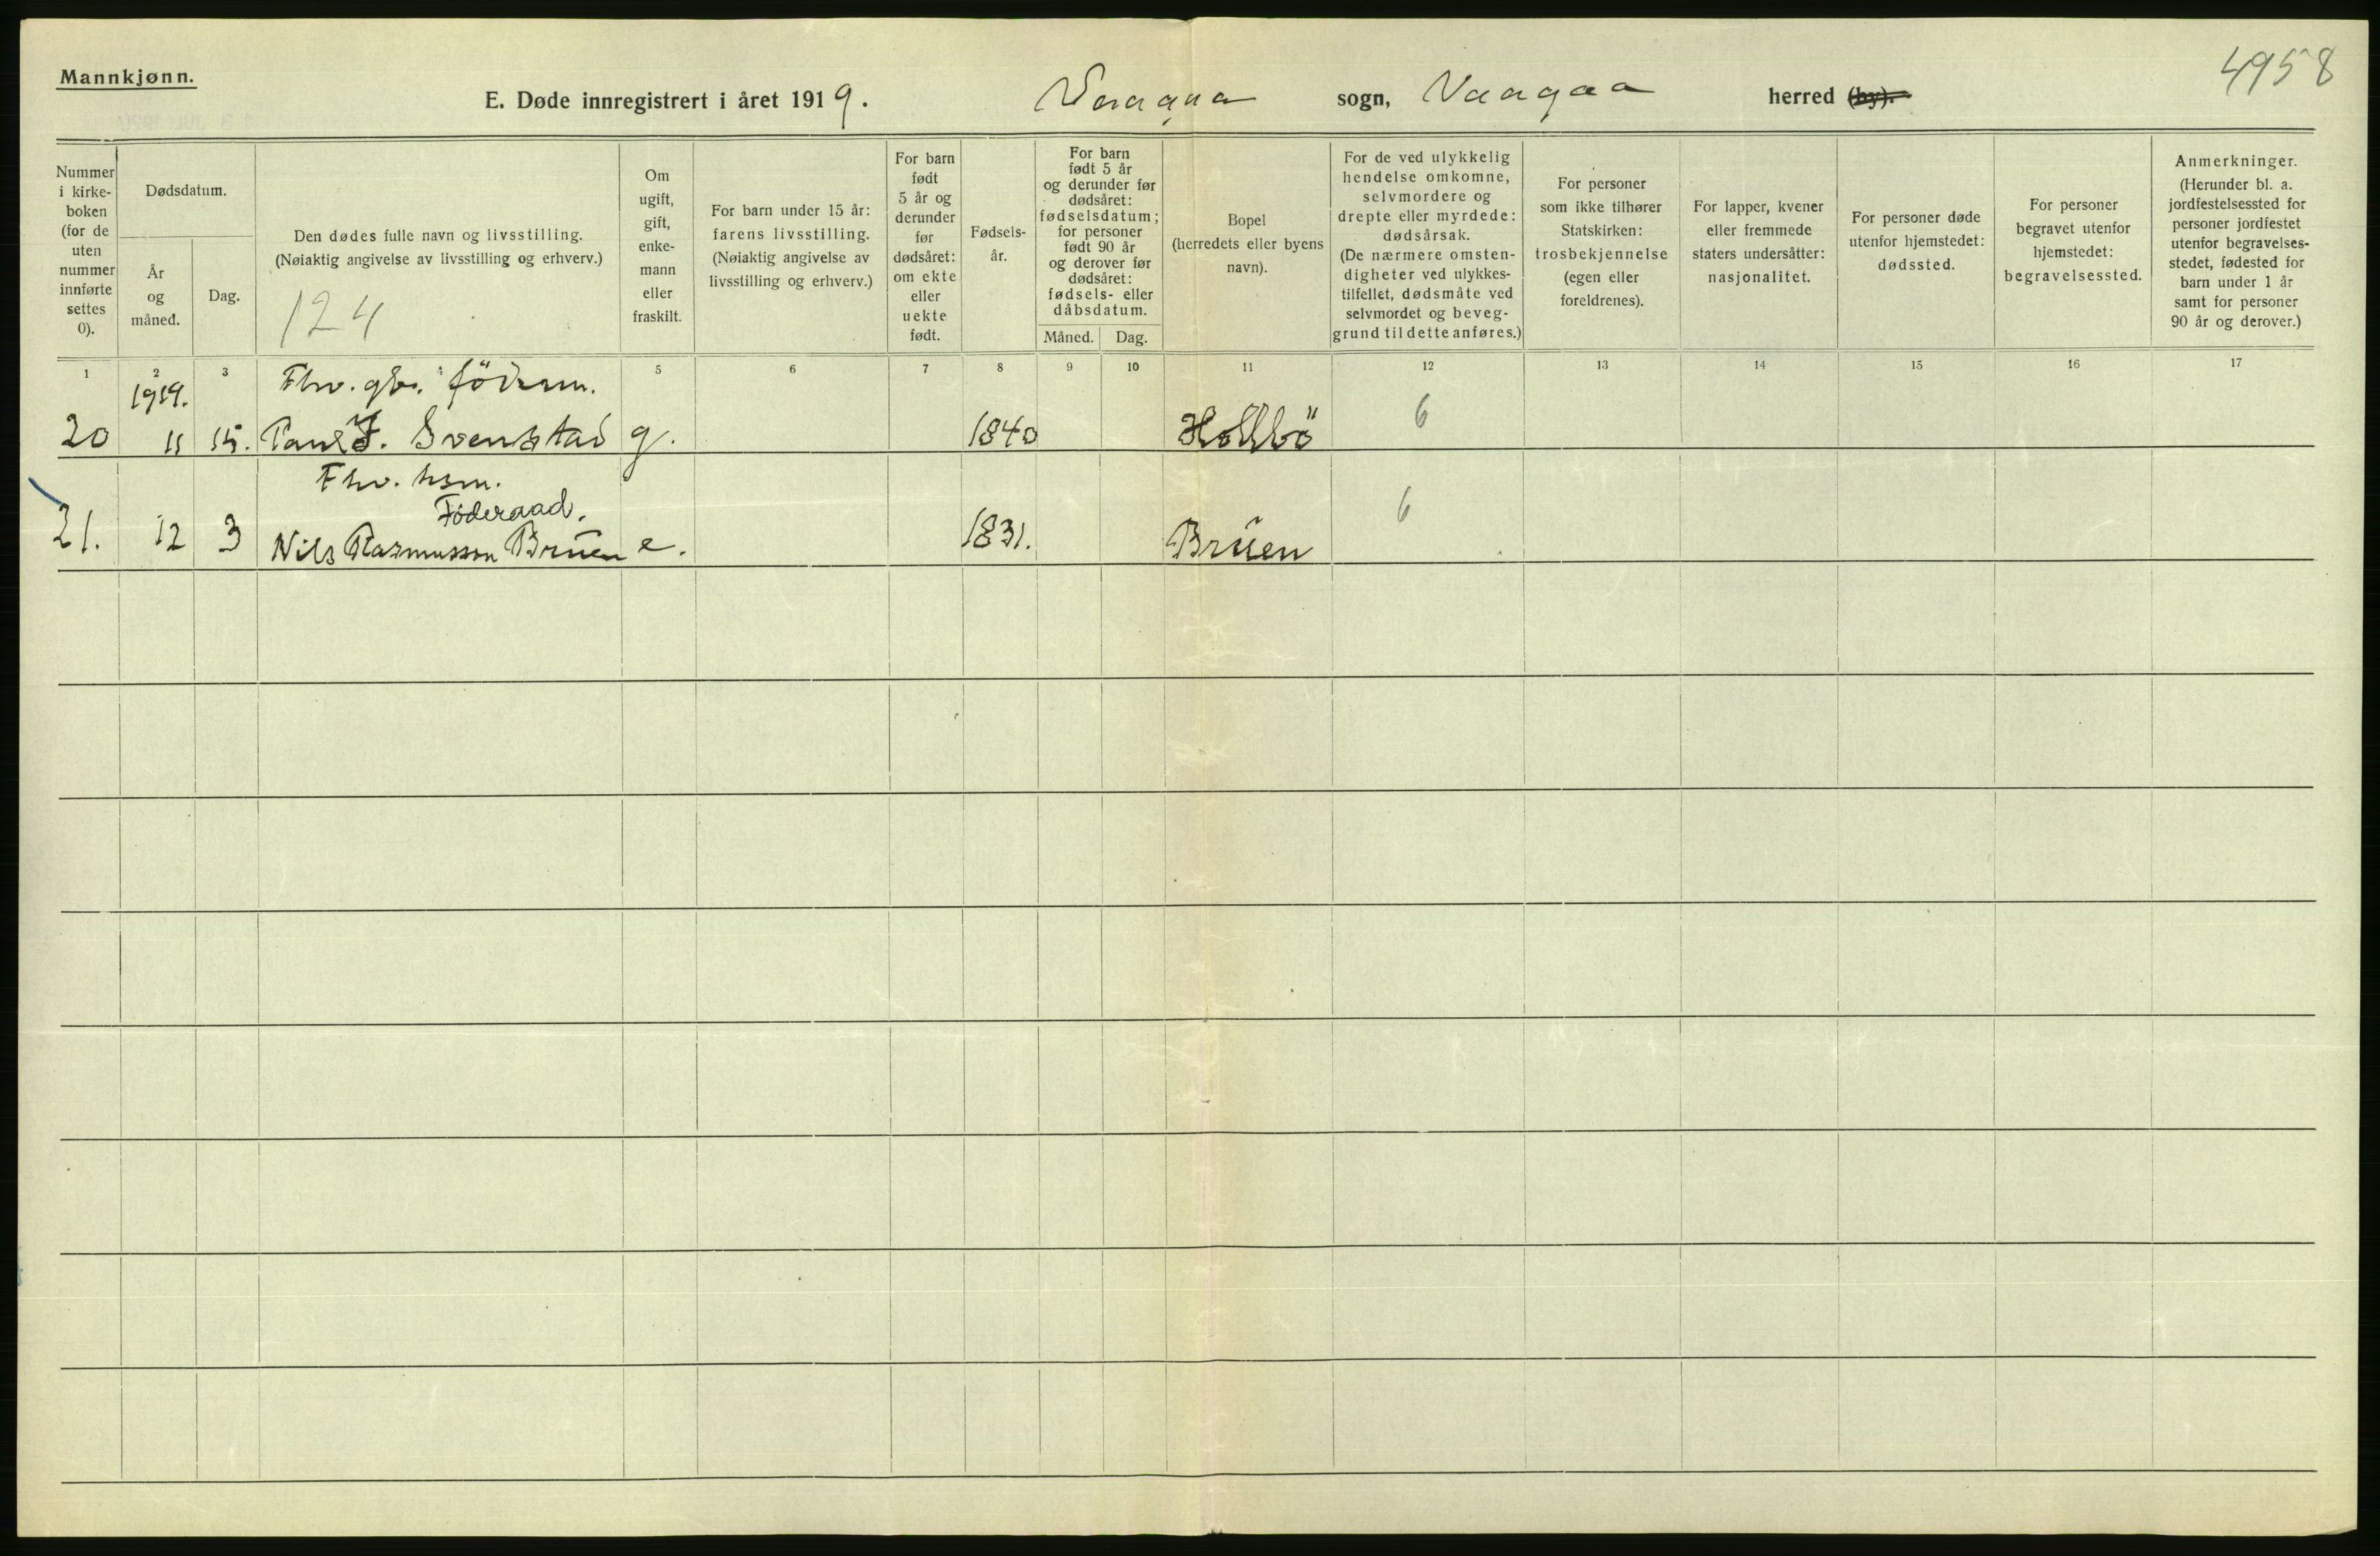 Mannkjønn.
4958
E. Døde innregistrert i året 1919. Vaagaa sogn, Vaagaa herred (by).
Nummer i kirke- boken (for de uten nummer innførte settes 0).
Dødsdatum.
År og måned.
Dag.
Den dødes fulle navn og livsstilling.
(Nøiaktig angivelse av livsstilling og erhverv.)
124
Om ugift, gift, enke- mann eller fraskilt.
For barn under 15 år:
farens livsstilling.
(Nøiaktig angivelse av
livsstilling og erhverv.)
For barn født 5 år og derunder før dødsåret: om ekte eller uekte født.
Fødsels- år.
For barn
født 5 år
og derunder før
dødsåret:
fødselsdatum;
for personer
født 90 år
og derover før
dødsåret:
fødsels- eller
dåbsdatum.
Måned. Dag.
Bopel
(herredets eller byens
navn).
For de ved ulykkelig
hendelse omkomne,
selvmordere og
drepte eller myrdede:
dødsårsak.
(De nærmere omsten-
digheter ved ulykkes-
tilfellet, dødsmåte ved
selvmordet og beveg-
grund til dette anføres.)
For personer
som ikke tilhører
Statskirken:
trosbekjennelse
(egen eller
foreldrenes).
For lapper, kvener
eller fremmede
staters undersåtter:
nasjonalitet.
For personer døde
utenfor hjemstedet:
dødssted.
For personer
begravet utenfor
hjemstedet:
begravelsessted.
Anmerkninger.
(Herunder bl. a.
jordfestelsessted for
personer jordfestet
utenfor begravelses-
stedet, fødested for
barn under 1 år
samt for personer
90 år og derover.)
1 2 3 5 6 7 8 9 10 11 12 13 14 15 16 17
1919. Fhv. gbr. föderm.
20 11 15. Paul J. Svenstad g. 1840 Hollbö 6
Fhv. hsm.
Föderaad.
21. 12 3 Nils Rasmusson Bruen e. 1831. Bruen 6